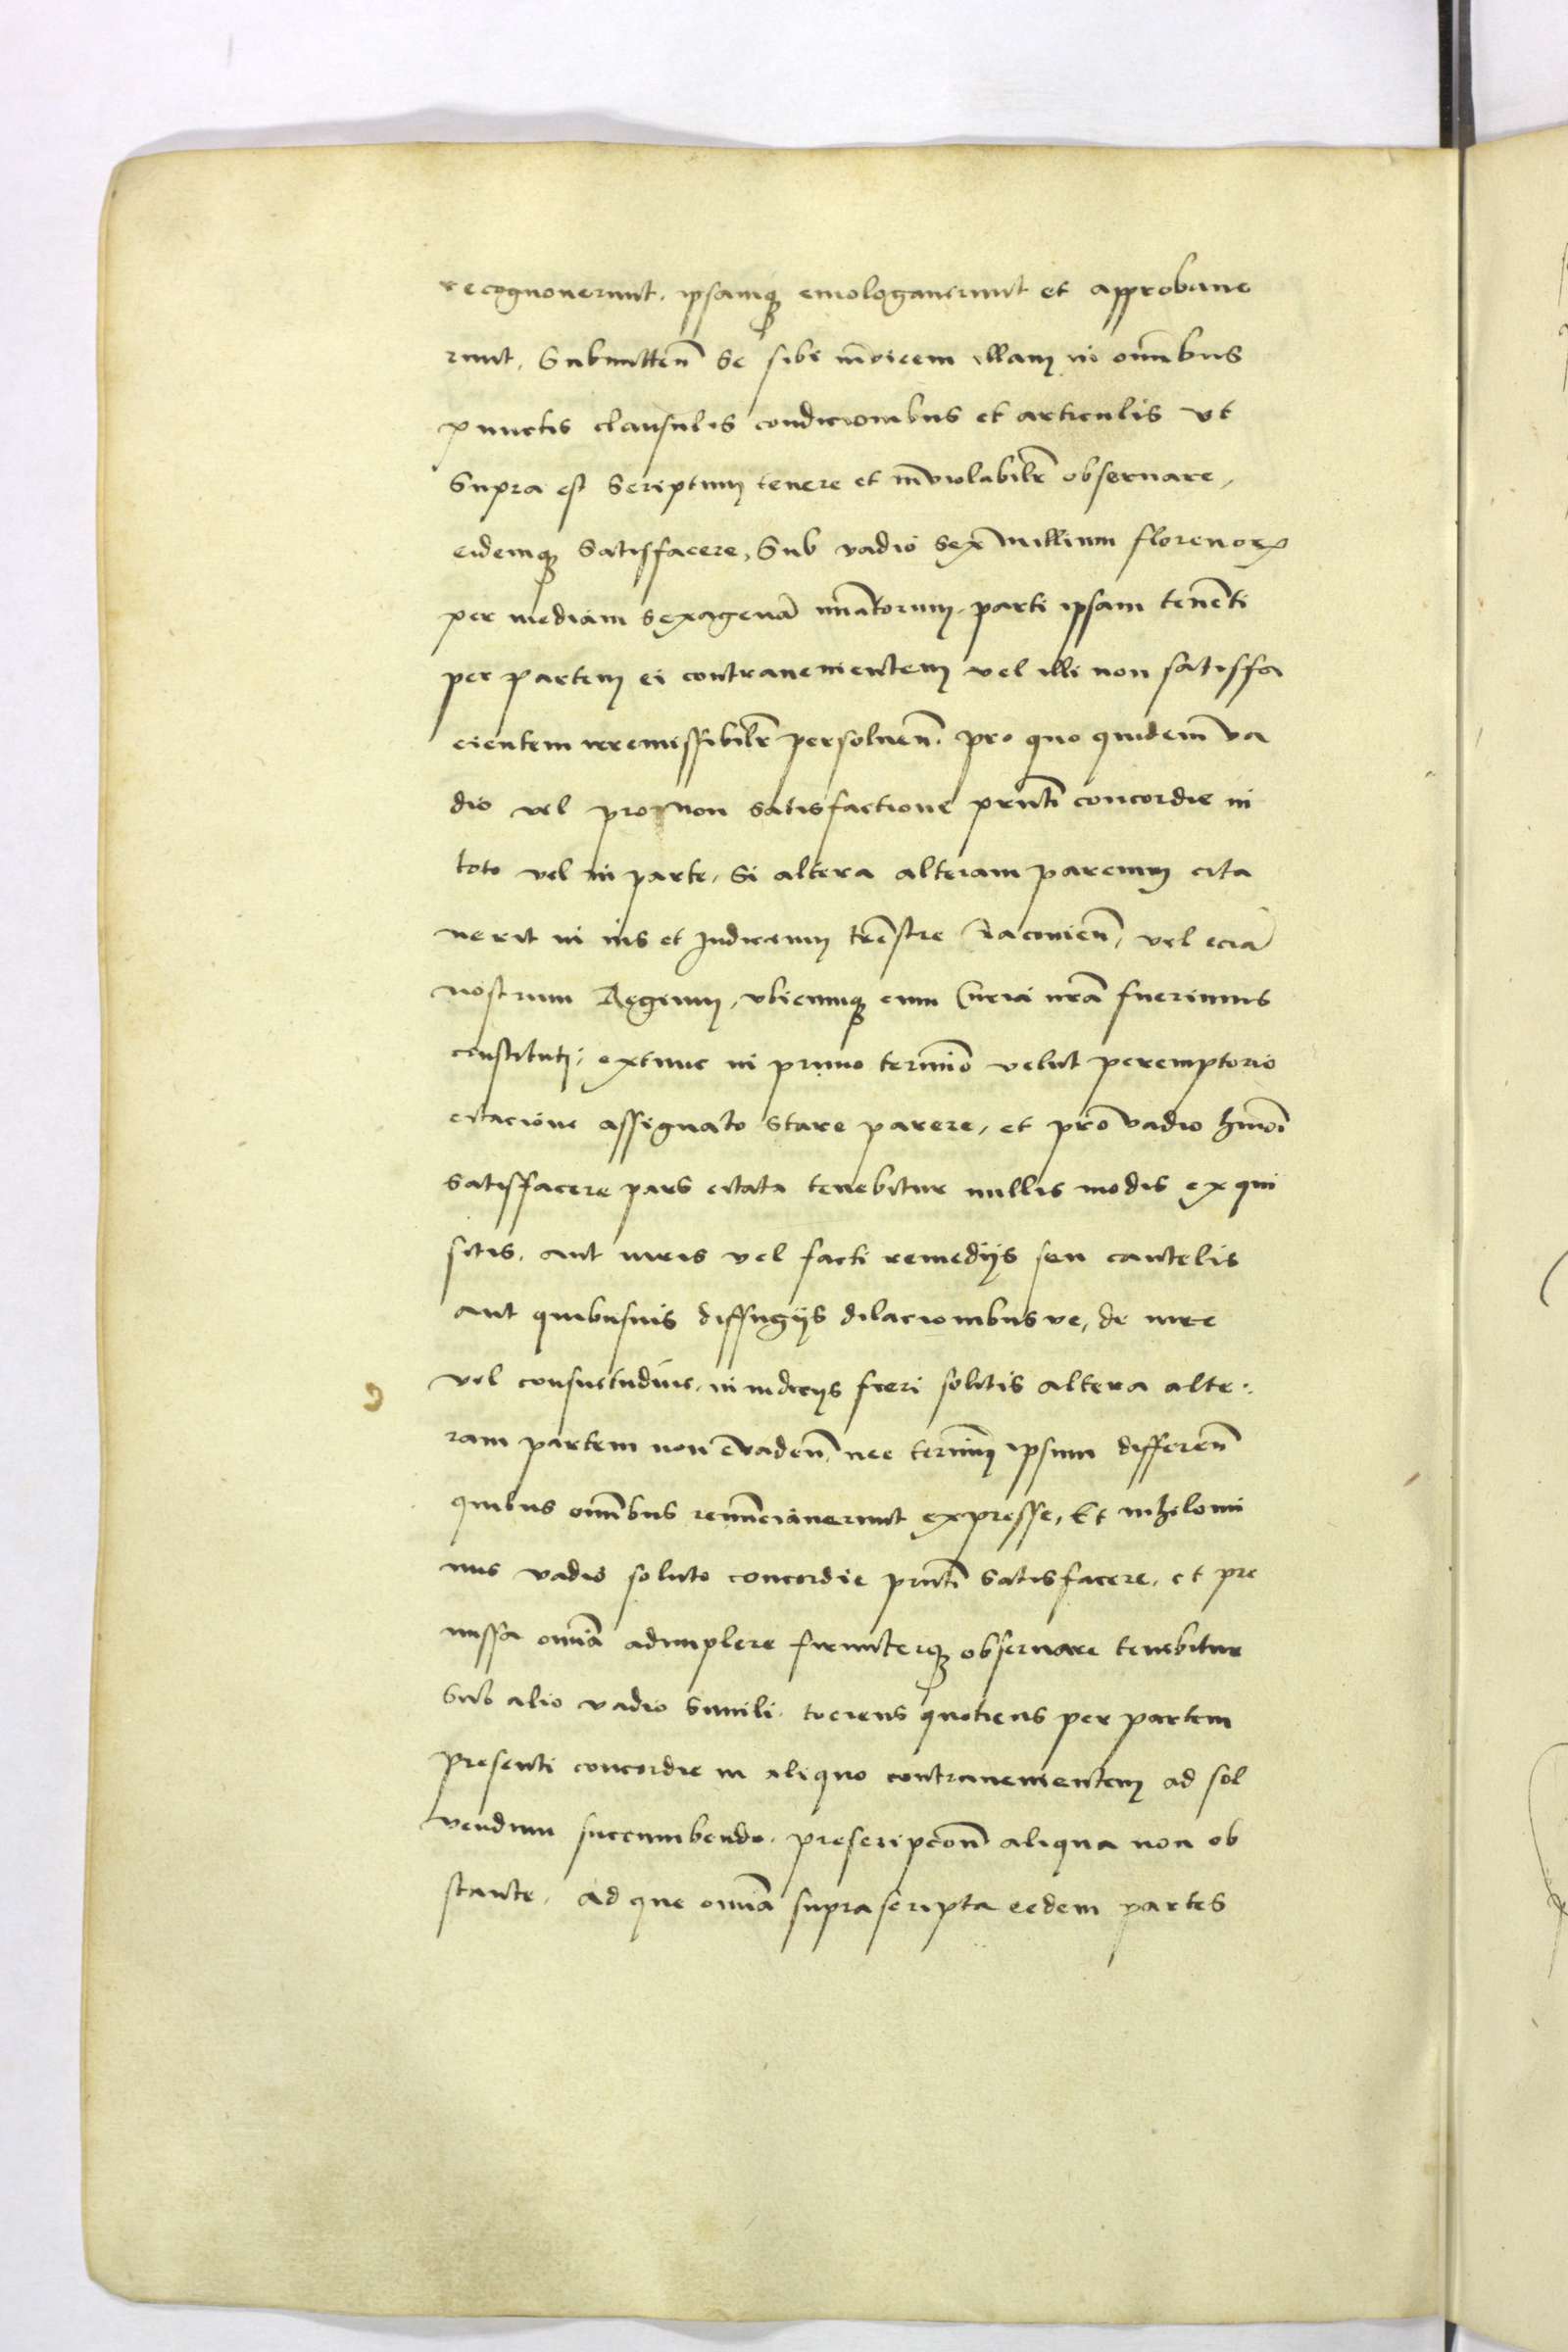 recognouerunt. ipsamq́ꝫ emologauerunt et approbaue
runt, Submitteñ Se sibi īnvicem illam in om̄ibus
punctis clausulis condicionibus et articulis vt
Supra est Scriptum tenere et īnviolabilr̄ obseruare,
eidemqꝫ Satisfacere, Sub vadio Sex millium florenoꝝ
per mediam sexagenā nūatorum, parti ipsam tenēti
per partem ei contrauenientem vel illi non satisffa
cientem irremissibilr̄ persolueñ. pro quo quidem va
dio vel pro non satisfactione pn̄ti concordie in
toto vel in parte, Si altera alteram parcium cita
uerit in ius et Judicium trr̄estre Cracouieñ, vel eciā
nostrum Regium, vbicumqꝫ cum Curia nr̄a fuerimus
constituti, extunc in primo termīo velut peremptorio
citacione assignato Stare parere, et pro vadio hmōi
satisffacere pars citata tenebitur nullis modis exqui
sitis, aut iuris vel facti remedijs seu cautelis
aut quibusuis diffugijs dilacionibus ve, de iure
vel consuetudine, in iudicijs fieri solitis altera alte:
ram partem non evadeñ, nec termīū ipsum differeñ
quibus om̄ibus renūnciauerunt expresse, Et nihilomi
nus vadio soluto concordie pn̄ti satisfacere, et pre
missa om̄ia adimplere firmiterqꝫ obseruare tenebitur
Sub alio vadio simili, tociens quotiens per partem
presenti concordie in aliquo contrauenientem ad sol
vendum succumbendo, prescripcōne aliqua non ob
stante, ad que om̄ia suprascripta eedem partes